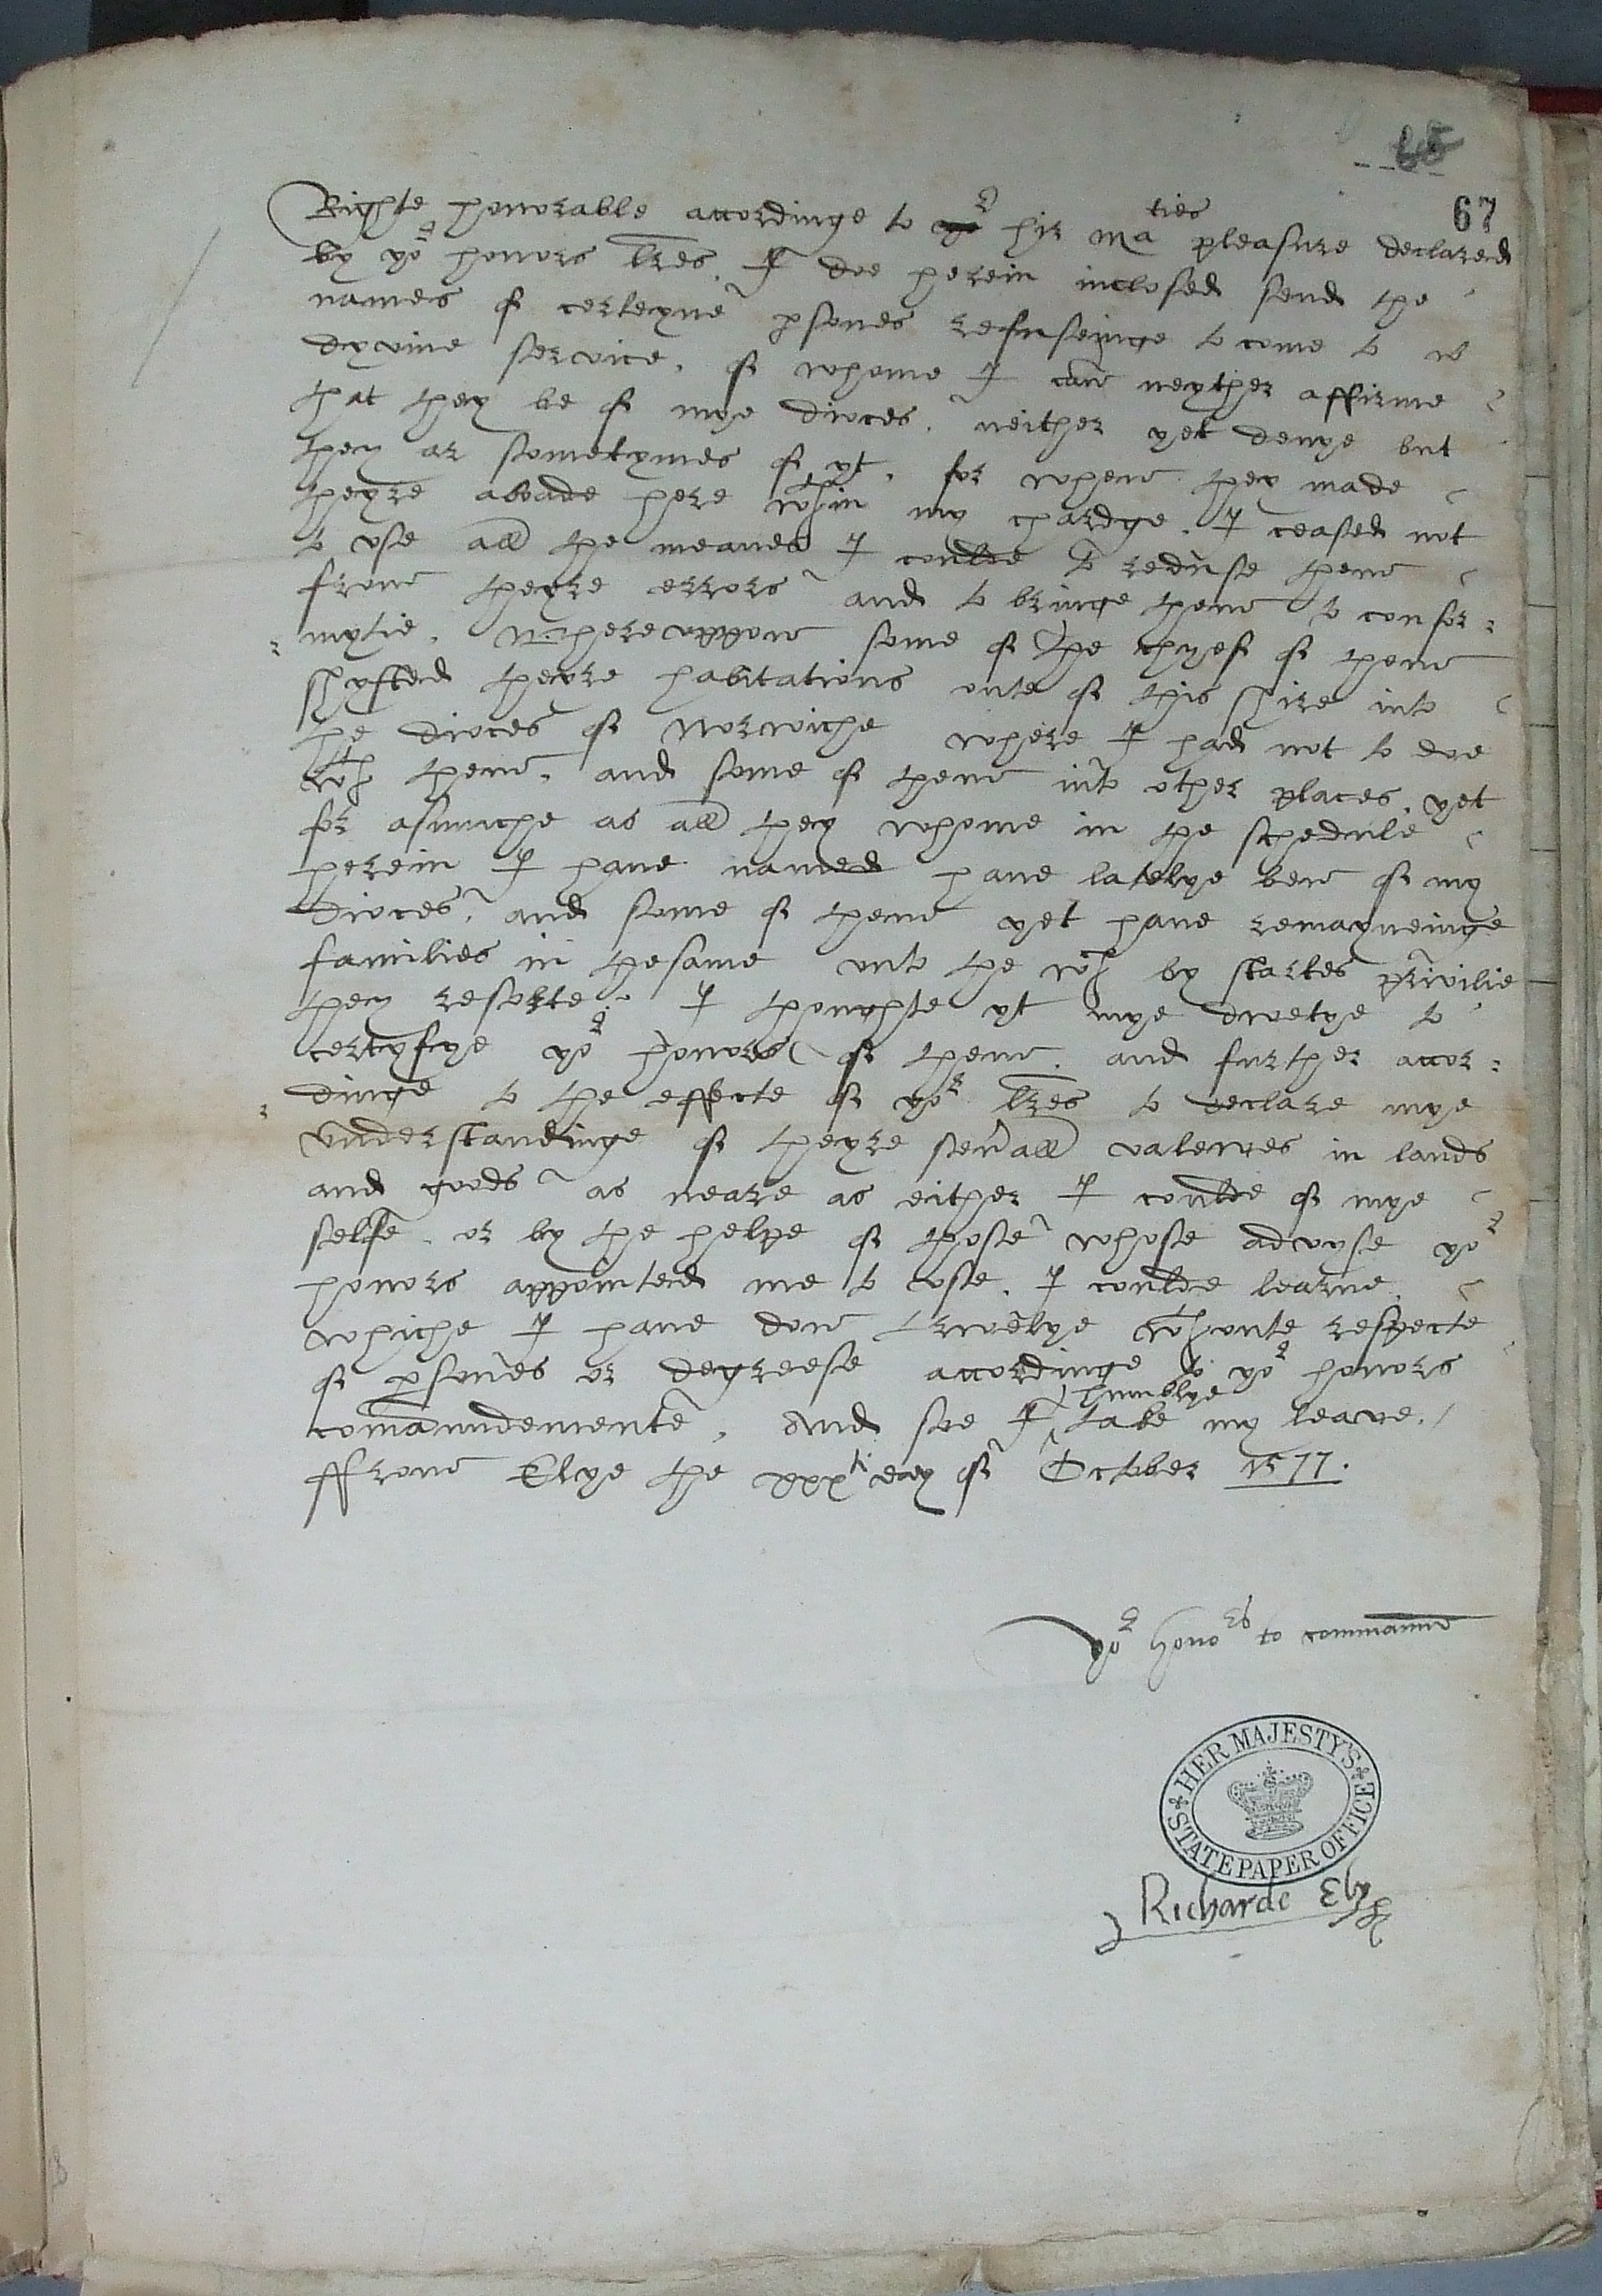 65
67
Righte honorable accordinge to yor hir maties pleasure declared
by yor honors lres. I doe herein inclosed send the
names of certeyne psones refuseinge to come to
dyvine service. of whome I can neyther affirme
that they be of mye dioces. neither yet denye but
they ar sometymes of yt. for when they made
theyre aboade here wthin my chardge. I ceased not
to vse all the meanes I coulde to reduse them
from theyre errors and to bringe them to confor-
mytie. Whereuppon some of the chyef of them
shyfted theyre habitations oute of this shire into
the dioces of Norwiche where I had not to doe
wth them. and some of them into other places. yet
for asmuche as all they whome in the schedule
herein I have named have latelye ben of my
dioces. and some of them yet have remayneinge
families in thesame vnto the wch by startes privilie
they resorte. I thoughte yt mye dwetye to
certyfye yor honors of them. and further accor-
dinge to the effecte of yor lres to declare mye
vnderstandinge of theyre seuall valewes in lands
and goods as neare as either I coulde of mye
selfe. or by the helpe of those whose advyse yor
honors appointed me to vse. I coulde learne.
whiche I have don trwelye wthoute respecte
of psones or degreese accordinge to yor honors
comaundemente. And soe I humblye take my leave.
ffrom Elye the xxxti day of October 1577.
Yor honors to commaunde
HER MAJESTY'S STATE PAPER OFFICE
Richarde Ely